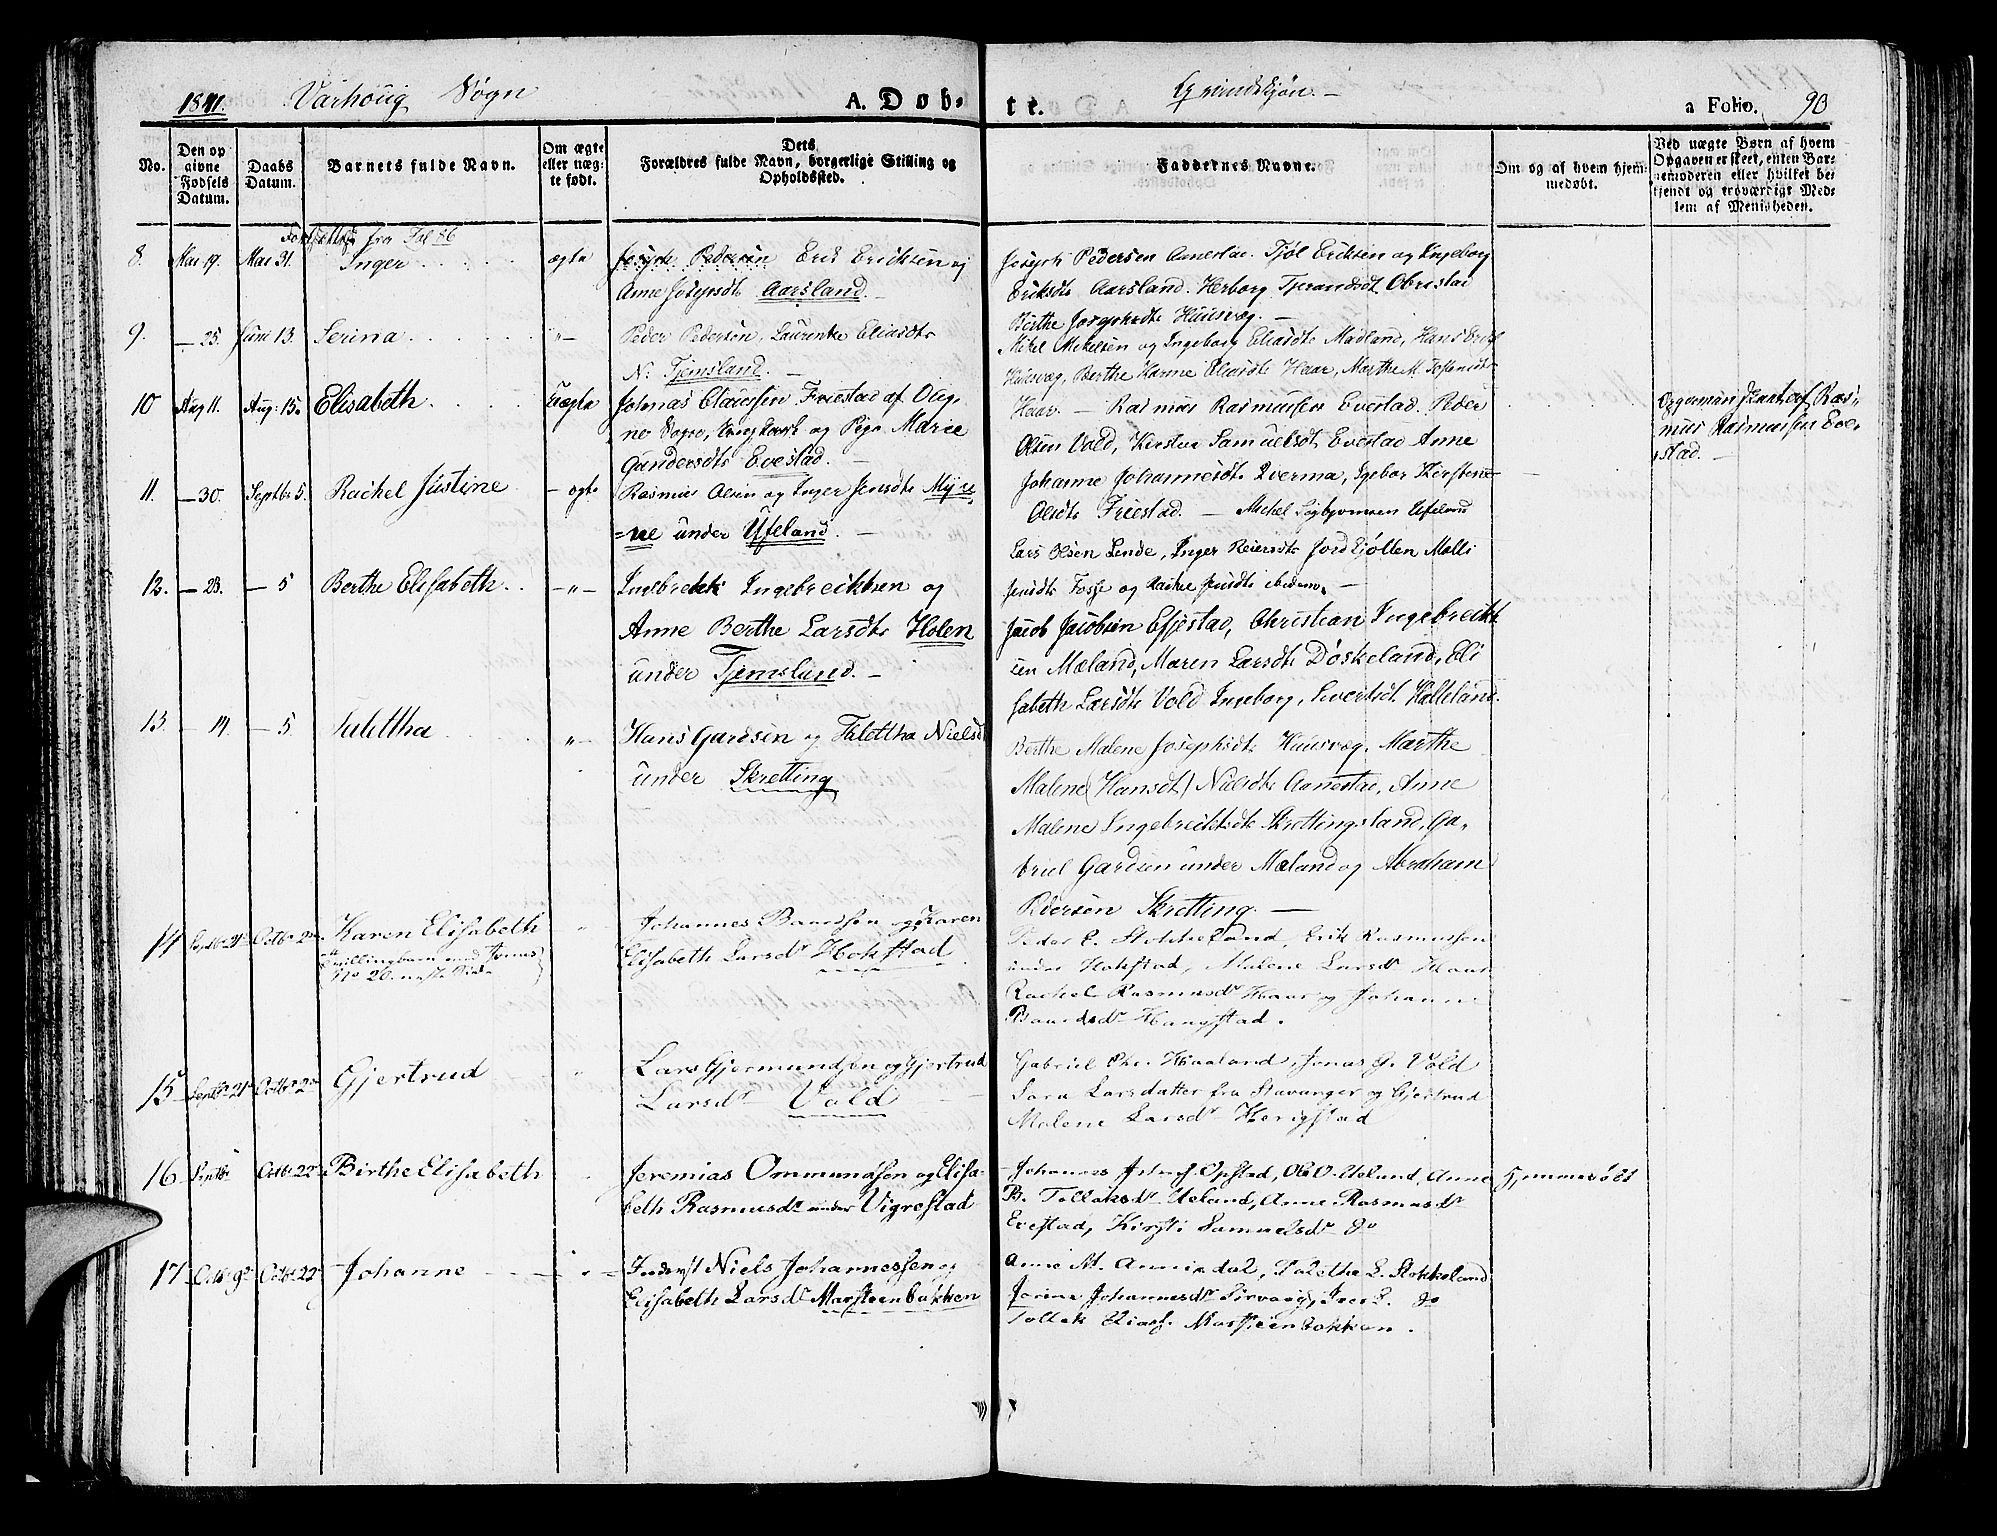 1841. Varhoug Sogn A. Døb-
te. Qvindekjøn. - a Folio. 90
No.
Den op
givne
Fødsels
Datum.
Daabs
Datum.
Barnets fulde Navn.
Om ægte
eller uæg-
te født.
Dets
Forældres fulde Navn, borgerlige Stilling og
Opholdssted.
Faddernes Navne.
Om og af hvem hjem-
medøbt.
Ved uægte Børn af hvem
Opgaven er skeet, enten Bar-
nemoderen eller hvilket be-
kjendt og troværdigt Med-
lem af Menigheden.
fra Fol 86
8. Mai 19. Mai 31. Inger ægte
Joseph Pedersen Erik Eriksen og
Anne Josephsdt Aarsland. -
Joseph Pedersen Anestad. Tjøl Eriksen og Ingeborg
Eriksdt Aarsland. Herborg Tjerandsdt Obrestad
Berthe Josephsdt Huusvæg. -
9. - 25. Juni 13. Serina -"-
Peder Pedersen, Laurentze Eliasdt
N. Tjemsland. -
Mikel Mikelsen og Ingeborg Eliasdt Madland, Hans Erik
Huusvæg, Berthe Karine Eliasdt Haar, Marthe M. Tostensdt
Haar. -
10 Aug 11. Aug: 15. Elisabeth. Uægte
Jonas Claussen Friestad af Olig
no Sogn, Ungkarl og Pige Marie
Gundersdt Evestad. -
Rasmus Rasmussen Evestad. Peder
Olsen Vold, Kirsten Samuelsdt Evestad Anne
Johanne Johannesdt Qverma, Igebor Kirstene
Olsdt Friestad. -
Opgaven skeet af Ras-
mus Rasmussen Eve-
stad. -
11. - 30. Septbr 5. Rachel Justine - ægte
Rasmus Olsen og Inger Jensdt Myre
=ne under Ueland. -
Michel Sigbjørnsen Ueland
Lars Olsen Lende, Inger Reiersdt Jordkjøllen Malli
Jensdt Fosse og Rachel Jensdt ibidem. -
12. - 23. - 5 Berthe Elisabeth. -"-
Ingebrekt Ingebreiktsen og
Anne Berthe Larsdt Holen
under Tjemsland. -
Jacob Jacobsen Efjestad, Christian Ingebreikt
sen Mæland, Maren Larsdt Døskeland, Eli
sabeth Larsdt Vold Ingeborg Sivertsdt Hælleland.
13. - 14. - 5 Talettha "-
Hans Gardsen og Talettha Nielsd
under Skretting
Berthe Malene Josephsdt Huusvæg. Marthe
Malene (Hansdt) Nielsdt Aanestad, Anne
Malene Ingebreiktsdt Skrettingsland, Ga-
briel Gardsen under Mæland og Abraham
Pedersen Skretting. -
14 Septbr 21 Octbr 2 Karen Elisabeth
Tvillingbarn med Jonas
No 20. næste Side
Johannes Baardsen og Karen
Elisabeth Larsdr Hokstad
Peder E. Stokkeland, Erik Rasmussen
under Hokstad, Malene Larsdr Haar
Rachel Rasmusdr Haar og Johanne
Baardsdr Haugstad.
15 Septbr 21 Octbr 2 Gjertrud
Lars Gjermundsen og Gjertrud
Larsdr Vold
Gabriel Chr. Haaland, Jonas G. Vold
Sara Larsdatter fra Stavanger og Gjertrud
Malene Larsdr Herigstad
16 Septbr Octbr 22 Birthe Elisabeth
Jeremias Ommundsen og Elisa-
beth Rasmusdr under Vigrestad
Johannes Opstad, Ole O. Ueland, Anne
B. Tollaksdr Ueland, Anne Rasmusdr
Evestad, Kirsti Samuelsdr do
Hjemmedøbt
17 Octbr 9 Octbr 22 Johanne
Inderst Niels Johannessen og
Elisabeth Larsdr Marsteenbakken
Anne M. Anniedal, Taletha L. Stokkeland
Jorine Johannesdr Sirevaag, Iver L. do
Tollak Eliass. Marsteenbakken.